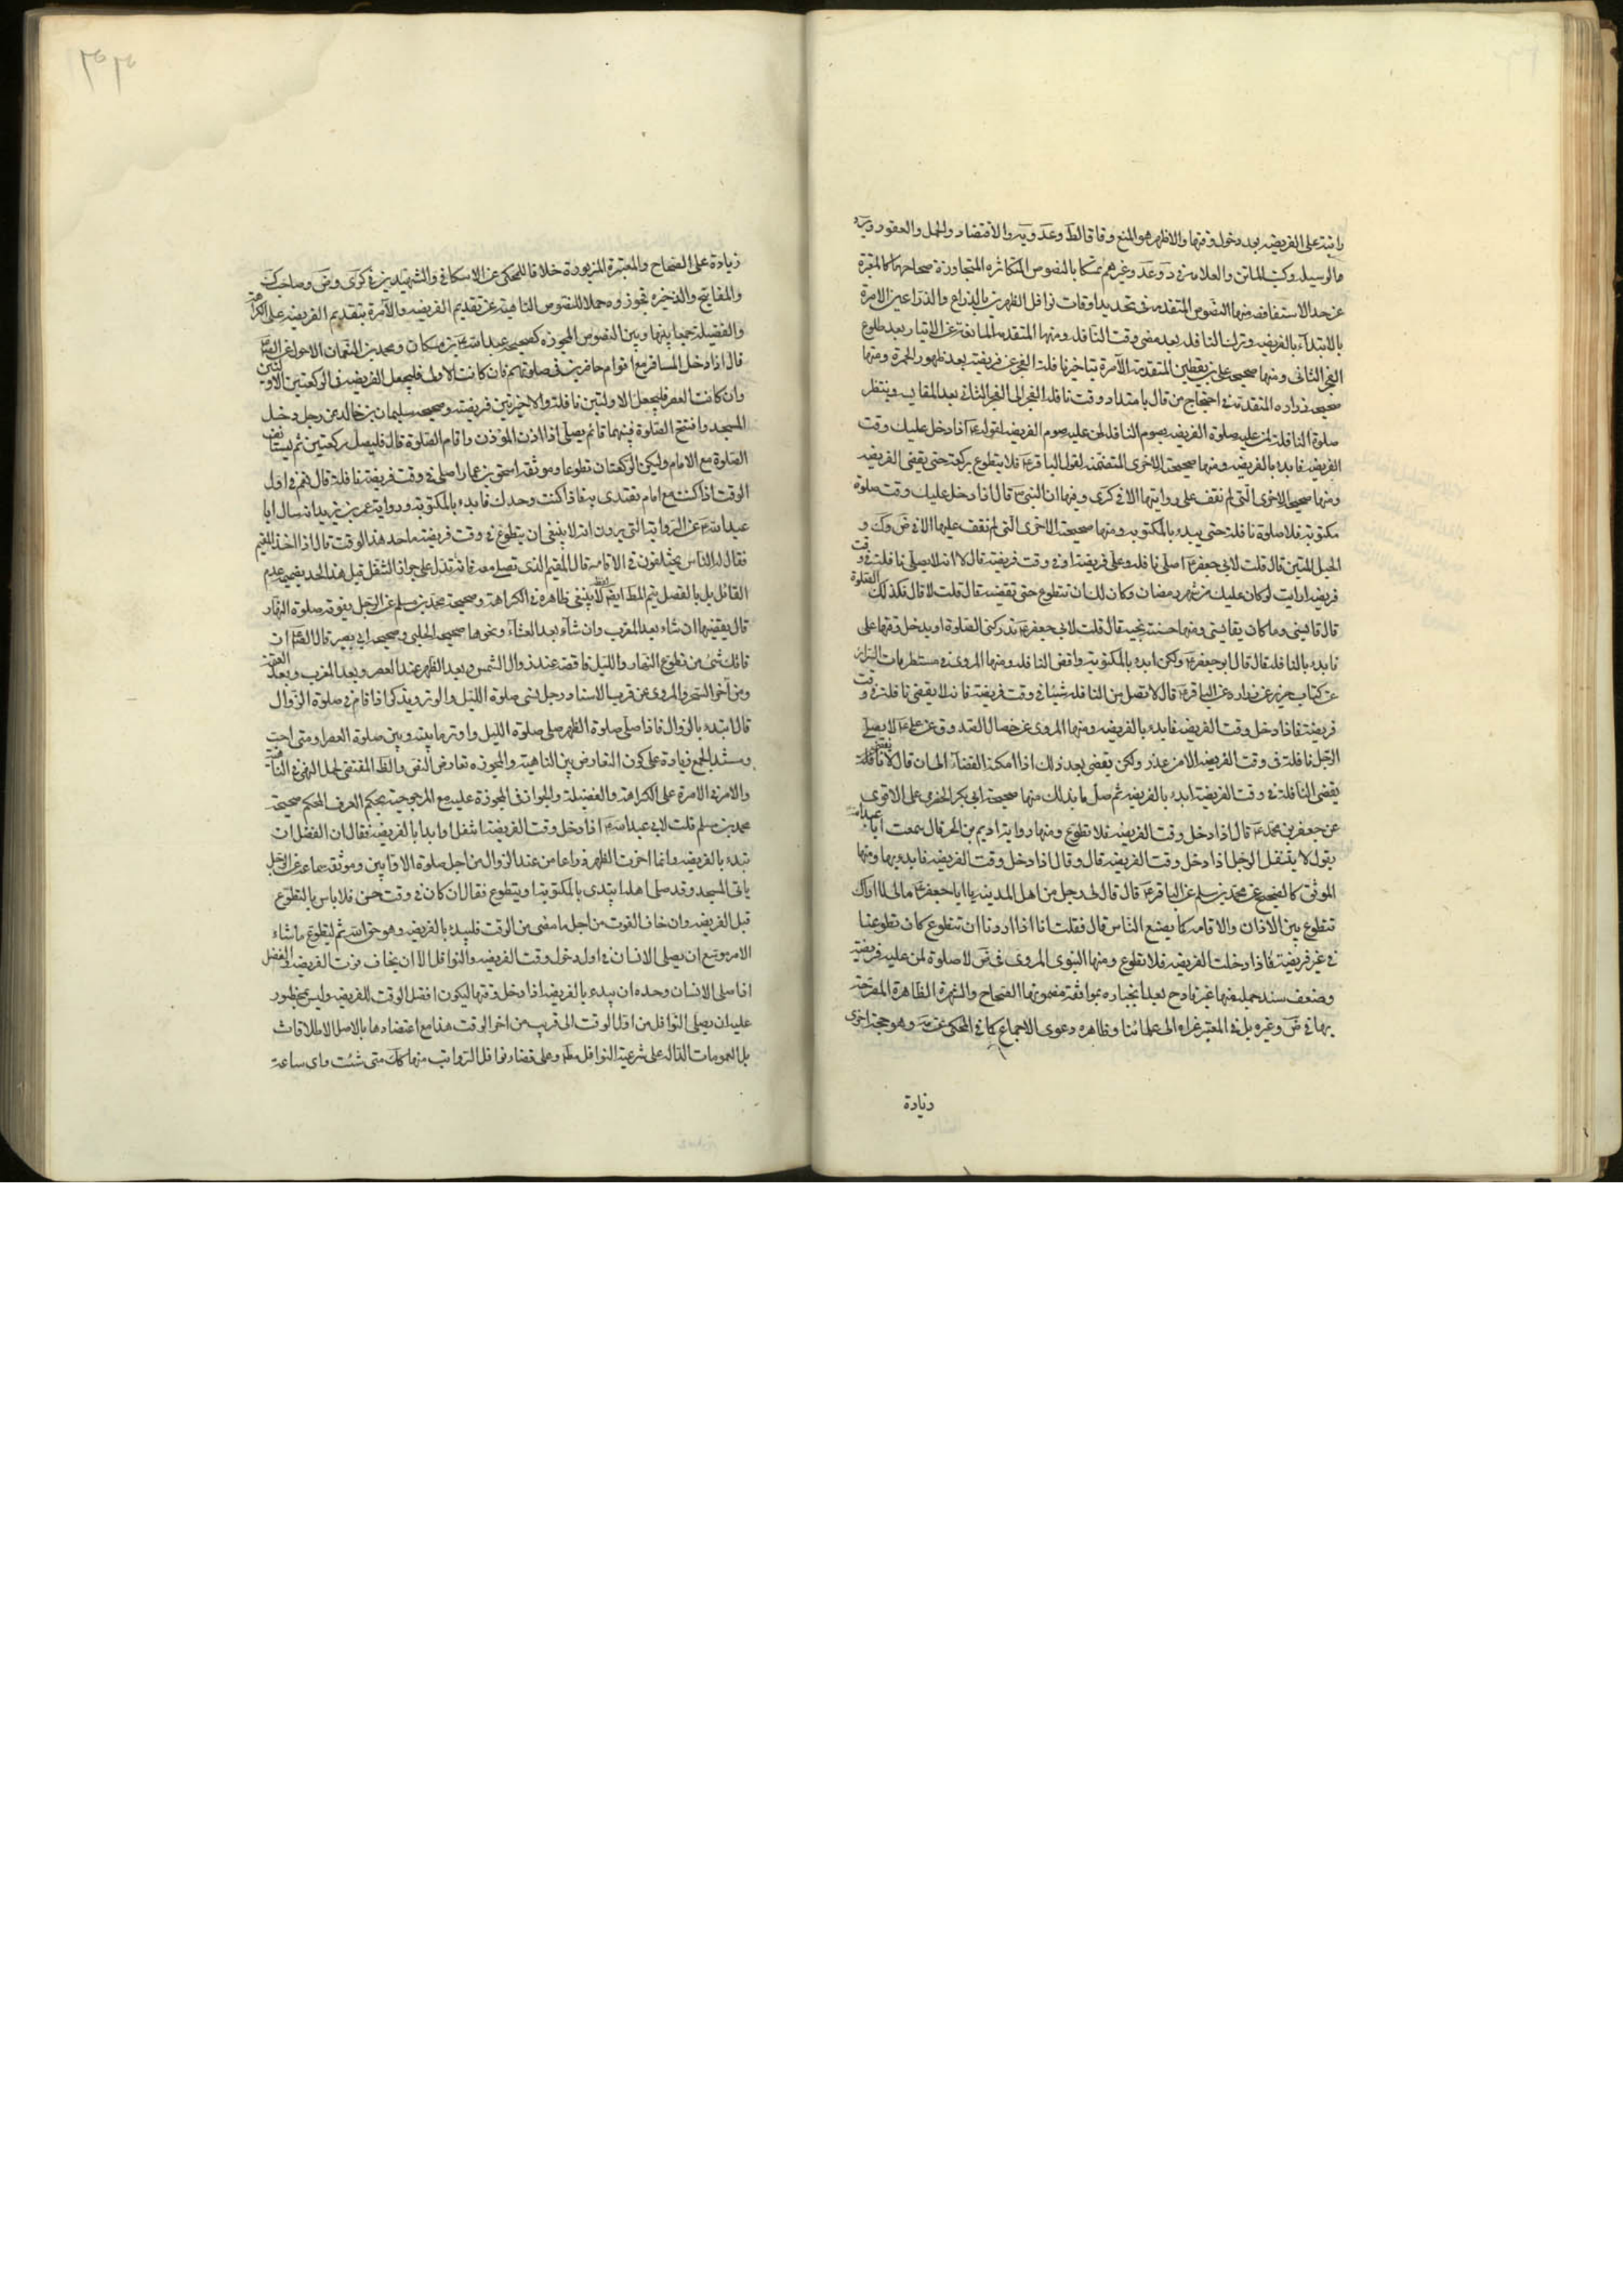 راتبة على الفريضه بعد دخول وقتها والاظهر هو المنع وفاقا لظ وعد ويه والاقتصاد والجمل والعقود
مالوسيله وكتب الماتن والعلامه في د وعد وغيرهم تمسكا بالنصوص المتكاثره المتجاوزة صحاحها كالمعتبرة
عن حد الاستفاضه منها النصوص المتقدمه في تحديد اوقات نوافل الظهرين بالذراع والذراعين الامرة
بالابتداء بالفريضه وترك النافله بعد مضى وقت النافله ومنها المتقدمه المانعة عن الايتار بعد طلوع
الفجر الثانى ومنها صحيحه على بن يقطين المتقدمة الآمرة بتاخير نافلة الفجر عن فريضته بعد ظهور الحمرة ومنها
صحيحه زراره المتقدمة في احتجاج من قال بامتداد وقت نافله الفجر الى الفجر الثانى بعد المقايسه وينتظر
صلوة النافلة لمن عليه صلوة الفريضه بصوم النافله لمن عليه صوم الفريضه لقوله ع اذا دخل عليك وقت
الفريضه فابدء بالفريضه ومنها صحيحته الاخرى المتضمنه لقول الباقر ع فلا يتطوع بركعة حتى يقضى الفريضه
ومنها صحيحه الاخرى التى لم نقف على روايتها الا في كرى وفيها ان النبى ص قال اذا دخل عليك وقت صلوة
مكتوبة فلا صلوة نافلة حتى يبدء بالمكتوبه ومنها صحيحته الاخرى التى لم نقف عليها الا في ض وك و
الحبل المتين قال قلت لابى جعفر ع اصلى نافله وعلى فريضة او في وقت فريضه قال لا انه لا يصلى نافلة في وقت
فريضه ارايت لو كان عليك من شهر رمضان وكان لك ان تتطوع حتى تقضيه قال قلت لا قال فكذلك الصلوة
قال فقايسنى وما كان يقايسنى ومنها حسنة نجيه قال قلت لابى جعفر ع تدركنى الصلوة او يدخل وقتها على
فابدء بالنافله قال قال ابو جعفر ع ولكن ابدء بالمكتوبة واقض النافله ومنها المروى في مستطرفات السرائر
عن كتاب حريز عن زراره عن الباقر ع قال لا تصل من النافلة شيئا في وقت فريضة فانه لا يقضى نافلة في وقت
فريضة فاذا دخل وقت الفريضه فابدء بالفريضه ومنها المروى عن خصال الصدوق عن على ع لا يصلى
الرجل نافلة في وقت الفريضه الا من عذر ولكن يقضى بعد ذلك اذا امكنه القضاء الى ان قال لا يقضى نافلة
يقضى النافلة في وقت الفريضة ابدء بالفريضه ثم صل ما بدا لك منها صحيحة ابى بكر الحضرمى على الاقوى
عن جعفر بن محمد ع قال اذا دخل وقت الفريضه فلا تطوع ومنها رواية اديم بن الحر قال سمعت ابا عبد الله
يقول لا يتنفل الرجل اذا دخل وقت الفريضه قال وقال اذا دخل وقت الفريضه فابدء بها ومنها
الموثق كالصحيح عن محمد بن مسلم عن الباقر ع قال قال لى رجل من اهل المدينه يا ابا جعفر ع مالى لا اراك
تتطوع بين الاذان والاقامه كما يصنع الناس قال فقلت انا اذا اردنا ان نتطوع كان تطوعنا
في غير فريضة فاذا دخلت الفريضه فلا تطوع ومنها النبوى المروى في ض لا صلوة لمن عليه فريضة
وضعف سند جملة منها غير قادح بعد انجباره بموافقة مضمونها الصحاح والشهرة الظاهرة المصرحة
بها في ض وغيره بل في المعتبر عزاه الى علمائنا وظاهره دعوى الاجماع كما في المحكى عن وهو حجة اخرى
زيادة
٣٠٣
زيادة على الصحاح والمعتبرة المزبورة خلافا للمحكى عن الاسكافى والشهيدين في كرى وض وصاحب ك
والمفاتيح والذخيره فجوزوه حملا للنصوص الناهية عن تقديم الفريضه والآمرة بتقديم الفريضه على الكراهة
والفضيلة جمعا بينها وبين النصوص المجوزه كصحيحه عبد الله بن مسكان ومحمد بن النعمان الاحول عن
قال اذا دخل المسافر مع اقوام حاضرين في صلوتهم فان كانت الاولى فليجعل الفريضه في الركعتين الاوليين
وان كانت العصر فليجعل الاولتين نافلة والاخيرتين فريضته وصحيحه سليمان بن خالد عن رجل دخل
المسجد وافتتح الصلوة فبينما قائم يصلى اذا اذن المؤذن واقام الصلوة قال فليصل ركعتين ثم ليستانف
الصلوة مع الامام وليكن الركعتان تطوعا وموثقه اسحق بن عمار اصلى في وقت فريضة نافلة قال نعم في اول
الوقت اذا كنت مع امام تقتدى به فاذا كنت وحدك فابدء بالمكتوبة ورواية عمر بن يزيد انه سال ابا
عبد الله ع عن الرواية التى يروون انه لا ينبغى ان يتطوع في وقت فريضته ما حد هذا الوقت قال اذا اخذ المقيم
فقال له الناس يختلفون في الاقامه قال المقيم الذى تصلى معه فانه تدل على جواز التنفل قبل هذا الحد بضميمة عدم
القائل بل بالفصل يتم المط ايضا لفظ لا ينبغى ظاهرة في الكراهة وصحيحة محمد بن مسلم عن الرجل يفوته صلوة النهار
قال يقضيها ان شاء بعد المغرب وان شاء بعد العشاء ونحوها صحيحه الحلبى وصحيحه ابى بصير قال الص ان
فاتك شئ من تطوع النهار والليل فاقضه عند زوال الشمس وبعد الظهر عند العصر وبعد المغرب وبعد العتمة
ومن آخر السحر والمروى عن قرب الاسناد رجل نسى صلوة الليل والوتر ويذكر اذا قام في صلوة الزوال
قال ابتدء بالزوال فاذا صلى صلوة الظهر صلى صلوة الليل واوتر ما بينه وبين صلوة العصر او متى احب
وسند الجمع زيادة على كون التعارض بين الناهية والمجوزه تعارض النص والظ المقتضى لحمل النهى في الناهية
والامر في الامرة على الكراهة والفضيلة والجواز في المجوزة عليه مع المرجوحية بحكم العرف المحكم صحيحة
محمد بن مسلم قلت لابى عبد الله ع اذا دخل وقت الفريضة اتنفل او ابدا بالفريضه فقال ان الفضل ان
تبدء بالفريضه وانما اخرت الظهر ذراعا من عند الزوال من اجل صلوة الاوابين وموثقه سماعه عن الرجل
ياتى المسجد وقد صلى اهله ايبتدى بالمكتوبة او يتطوع فقال ان كان في وقت حسن فلا باس بالتطوع
قبل الفريضه وان خاف الفوت من اجل ما مضى من الوقت فليبدء بالفريضه وهو حق الله ثم ليتطوع ما شاء
الامر موسع ان يصلى الانسان في اول دخول وقت الفريضه والنوافل الا ان يخاف فوت الفريضه والفضل
اذا صلى الانسان وحده ان يبدء بالفريضه اذا دخل وقتها ليكون افضل الوقت للفريضه وليس بمحظور
عليه ان يصلى النوافل من اول الوقت الى قريب من اخر الوقت هذا مع اعتضادها بالاصل الاطلاقات
بل العمومات الداله على شرعية النوافل مط وعلى قضاء نوافل الرواتب منها كك متى شئت واى ساعة